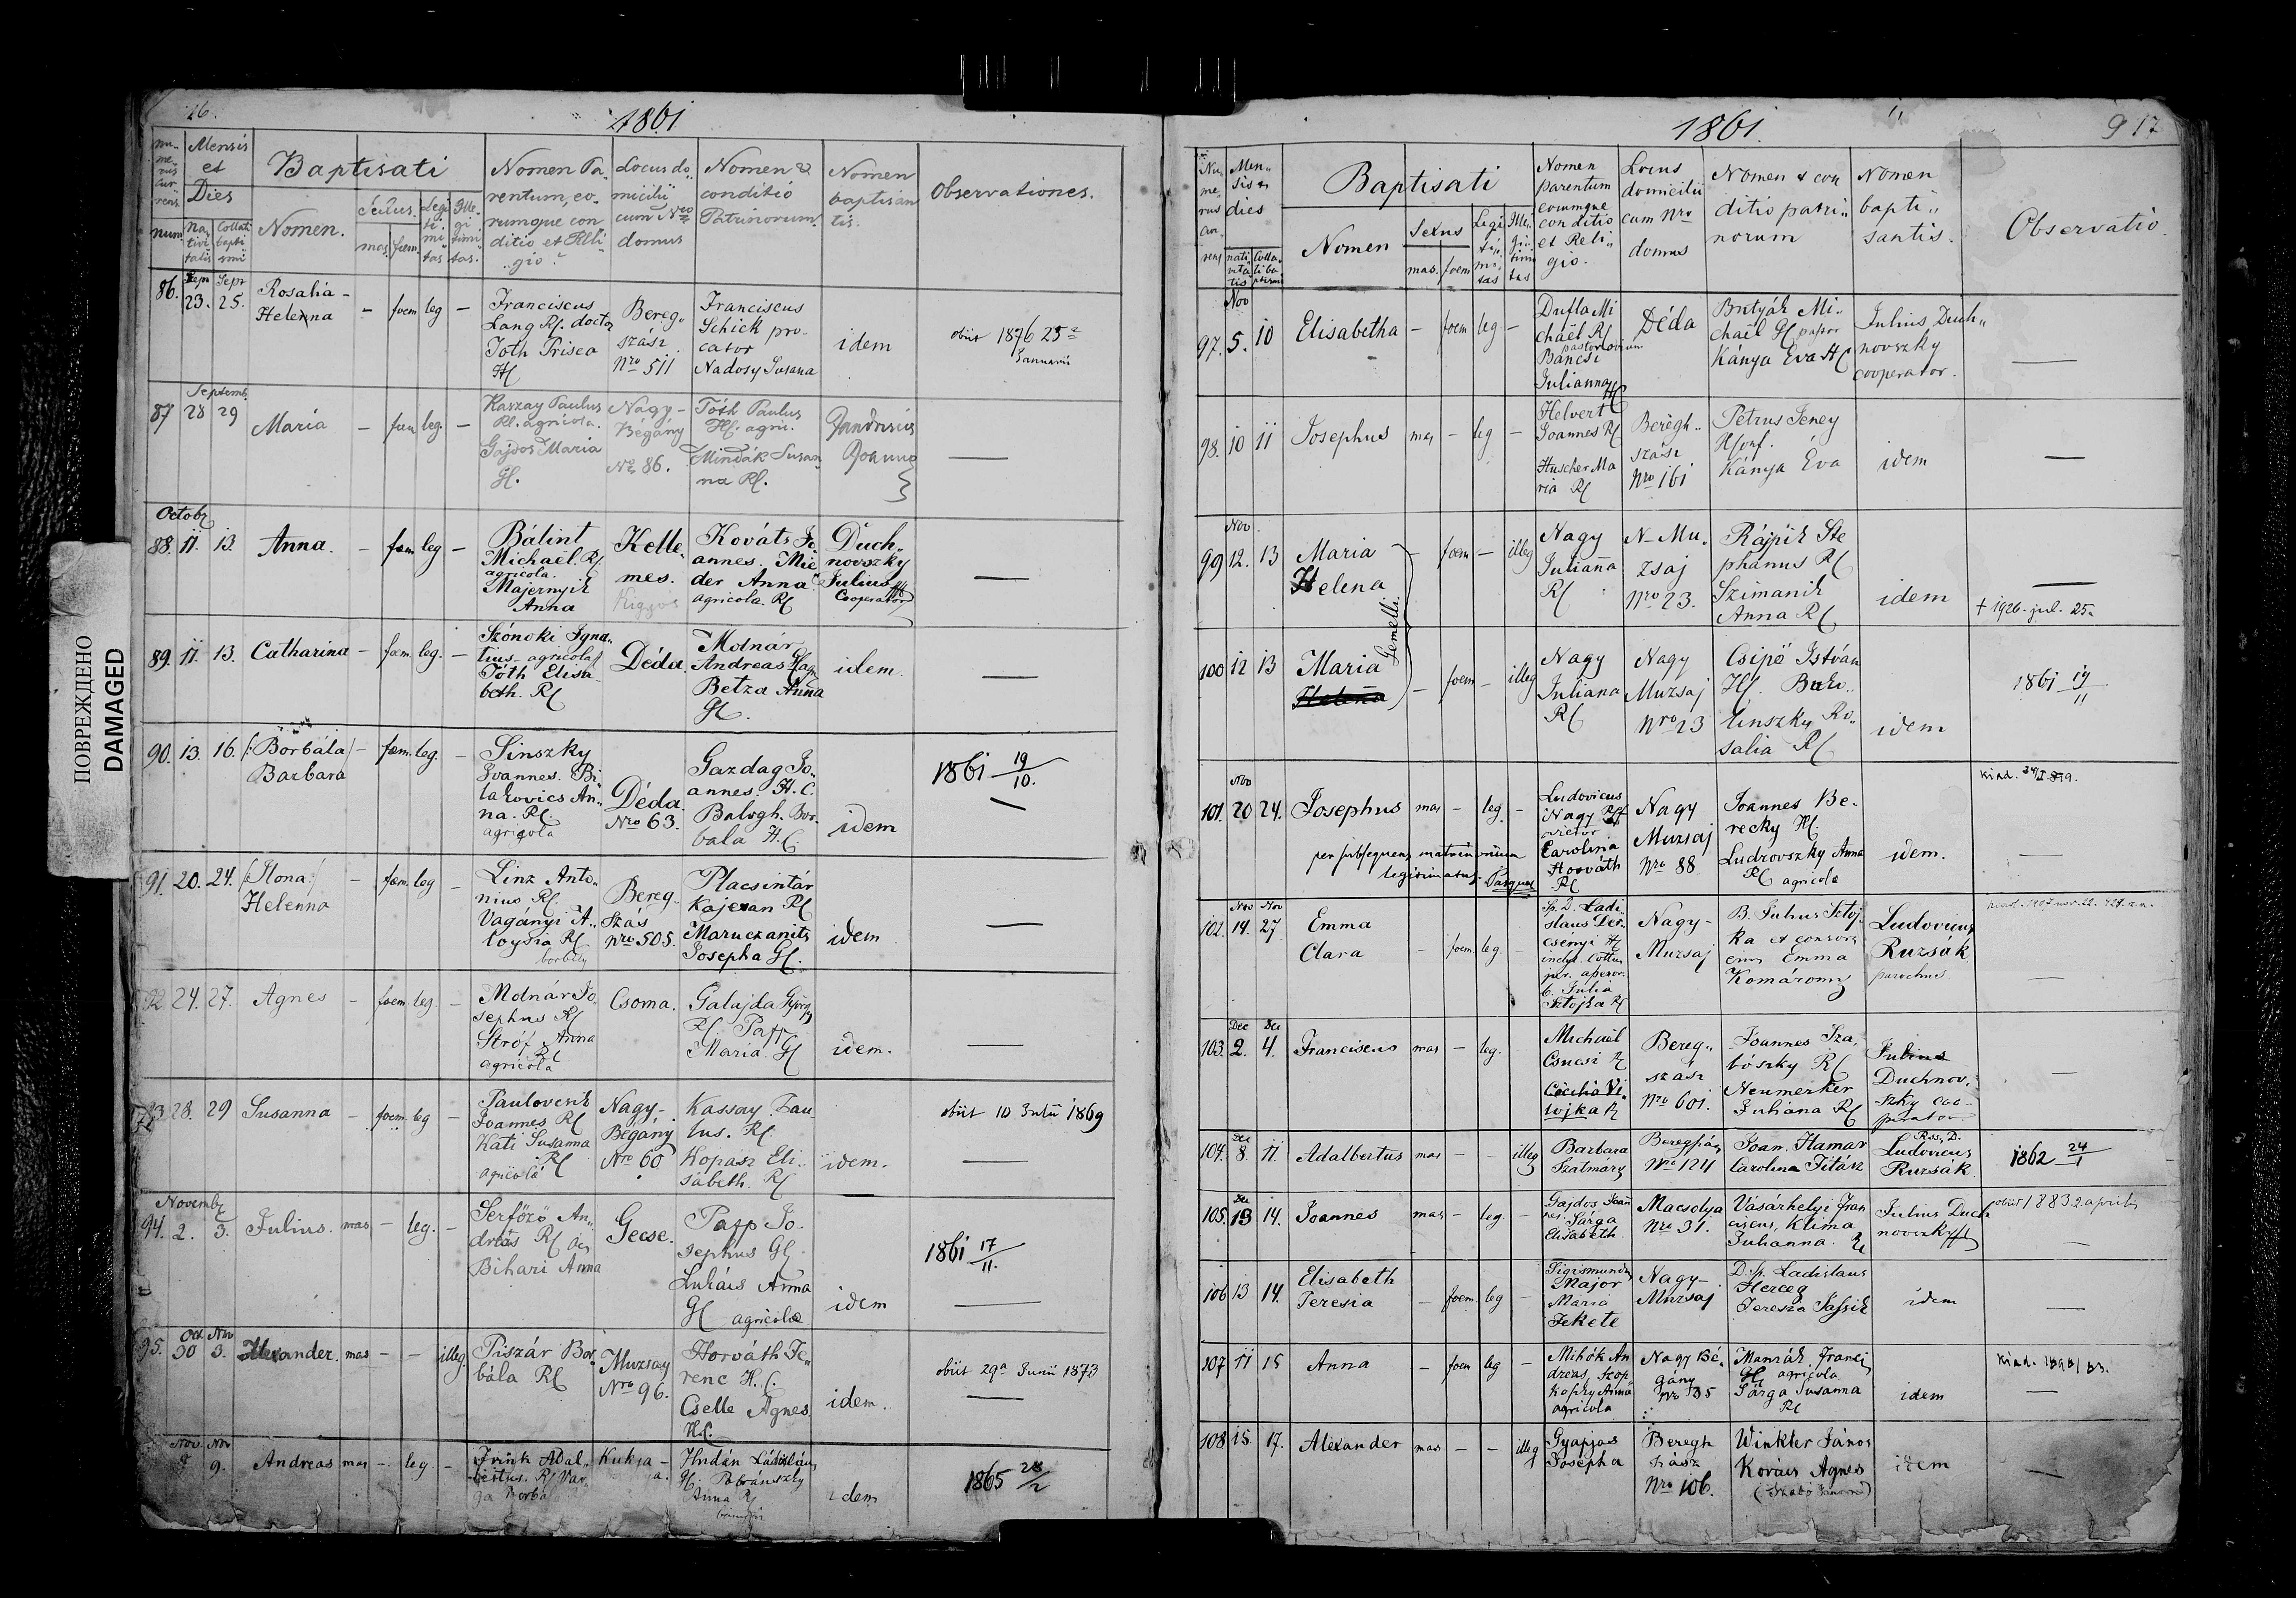 16.
1861
Mensis
et
Dies
Baptisati
Nomen.
Sexus.
mas.
foem.
Nomen Pa-
rentum, eo-
rumque con
ditio et Reli-
gio.
Locus do-
micilii
cum Nro
domus
Nomen &
conditio
Patrinorum.
Nomen
baptisan
tis.
Observationes.
86.
Sepr
23.
Sepr
25.
Rosalia-
Helenna
-
foem
leg
-
Franciscus
Lang Rl. doctor
Toth Prisca
Hl
Bereg„
szász
Nro 511
Franciscus
Schick pro-
cator
Nadosy Susana
idem
obiit 1876 25a
Januarii
87
Septemb.
28
29
Maria
-
foem
leg.
-
Kaszay Paulus
Rl. agricola.
Gajdos Maria
Gl.
Nagy-
Bégány
No 86.
Tóth Paulus
Hl. agric.
Mindák Susan
na Rl.
Octobr
88.
11.
13.
Anna.
-
foem
leg
-
Bálint
Michaël. Rl.
agricola.
Majernyik
Anna
Kelle„
mes.
Kováts Jo
annes. Mie
der Anna
agricola. Rl
Duch„
novszky
Julius
Cooperator
89.
11.
13.
Catharina
-
foem.
leg.
-
Szónoki Igna„
tius agricola
Tóth Elisa
beth. Rl
Déda.
Molnár
Andreas
Betza Anna
Gl.
idem.
90.
13.
16.
/:Borbála/
Barbara
-
foem.
leg.
-
Sinszky
Joannes. Bi
lakovics An„
na. Rl.
agricola
Déda.
Nro 63.
Gazdag Jo„
annes. H.C.
Balogh. Bor
bala H.C.
idem
1861 19/10.
91.
20.
24.
/Ilona/
Helenna
-
foem.
leg
-
Linz Anto„
nius Rl.
Vagányi A„
loysia Rl
Bereg
Szás
Nro 505.
Placsintár
Kajetan Rl
Maruczanits
Josepha Gl.
idem
92
24.
27.
Agnes
-
foem.
leg.
-
Molnár Jo„
sephus Rl
Stróf Anna
Rl
agricola
Csoma.
Galajda György
Rl Papp
Maria. Gl
idem.
93
28.
29
Susanna
-
foem.
leg
-
Paulovcsik
Joannes Rl
Kati Susanna
Rl
agricola
Nagy-
Bégány
Nro 60
Kassay Pau
lus. Rl.
Kopász Eli„
sabeth. Rl
idem.
obiit 10 Julii 1869
Novembr
94.
2.
3.
Julius.
mas
-
leg.
-
Serfőző An„
dreas Rl
Bihari Anna
Gecse.
Papp Jo„
sephus Gl
Lukács Anna
Gl agricolae
idem
1861 17/11.
95.
Oct
30
Nov
3.
Alexander.
mas
-
-
illeg.
Piszár Bor„
bála Rl
Muzsay
Nro 96.
Horváth Fe„
renc H.C.
Cselle Agnes.
H.C.
idem.
obiit 29a Junii 1873
Nov.
Nov
9.
Andreas
mas
-
leg.
-
Frink Adal„
bertus. Rl Var
ga Borba
Kukja-
Hudán Ladislaus
Gl.
Anna Rl
idem
1865 28/2
1861.
9 17
Men„
sis &
dies
Baptisati
Nomen
Sexus
mas.
foem
Nomen
parentum
eorumque
conditio
et Reli„
gio.
Locus
domicilii
cum Nro
domus
Nomen & con
ditio patri„
norum
Nomen
bapti„
santis.
Observatio.
Nov
97.
5.
10
Elisabetha
-
foem
leg
-
Dufla Mi
chaël Rl
pastor ovium
Bancsi
Julianna Hl
Déda
Butyák Mi„
chaël Gl
Kánya Eva Hl
Julius Duch„
novszky
cooperator.
98.
10
11
Josephus
mas
-
leg
-
Helvert
Joannes Rl
Huscher Ma
ria Rl
Beregh„
szász
Nro 161
Petrus Jeney
Kánya Éva
idem
Nov.
99
12.
13
Maria
Helena
Gemelli.
-
foem
-
illeg
Nagy
Julianna
Rl
N-Mu„
zsaj
Nro 23.
Rájpik Ste
phanus Rl
Szimanik
Anna Rl
idem
† 1926. jul. 25.
100
12
13
Maria
Helena
-
foem
-
illeg
Nagy
Juliana
Rl
Nagy
Muzsaj
Nro 23
Csipő István
Hl. Buko„
vinszky Ro„
salia Rl
idem
1861 19/11
Nov
101.
20
24.
Josephus
mas
-
leg.
-
per subsequens matrimonium
legitimatus.
Ludovicus
Nagy
Carolina
Horváth
Rl
Nagy
Muzsaj
Nro 88
Joannes Be-
recky Hl.
Ludrovszky Anna
Rl agricola
idem.
102.
Nov
19.
Nov
27
Emma
Clara
-
foem.
leg.
-
Sp. D. Ladi
slaus Der„
csenyi Hl
b. Julia
Sztojka Rl
Nagy-
Muzsaj
B. Julius Sztoj
ka et consors
eius Emma
Komáromy
Ludovicus
Ruzsák
parochus.
103.
Dec
2.
Dec
4.
Franciscus
mas
-
leg.
Michaël
Csucsi Rl
Cäcilia Vi„
lojka Rl
Bereg„
szász
Nro 601.
Joannes Sza„
bószky Rl
Neumerker
Juliana Rl
Julius
Duchnov„
szky coo-
perator.
104.
Dec
8.
11.
Adalbertus
mas
-
-
illeg
Barbara
Szatmáry
Beregszász
Nro 124
Joan. Hamar
Carolina Titász
Rss. D.
Ludovicus
Ruzsák.
1862 24/1
105.
Dec
13
14.
Joannes
mas
-
leg.
-
Gajdos Joan
nes. Sárga
Elisabeth.
Macsolya
Nro 31.
Vásárhelyi Fran
ciscus, Klima
Julianna. Rl
Julius Duch
novszky
obiit 1883 2 aprilis
106
13
14.
Elisabeth
Teresia
-
foem.
leg
-
Sigismundus
Major
Maria
Fekete
Nagy-
Muzsaj
D. Sp. Ladislaus
Herceg
Teresia Jassik
idem
107
11
15
Anna
-
foem
leg
-
Mihók An
dreas, Szop„
kopky Anna
agricola
Nagy Bé„
gány
Nro 35
Manzák Franci
Gl agricola
Sárga Susanna
Rl
idem
108
15.
17.
Alexander
mas
-
-
illeg
Gyapjas
Josepha
Beregh
szász
Nro 106.
Winkler János
Kovács Agnes
idem
ПОВРЕЖДЕНО
DAMAGED